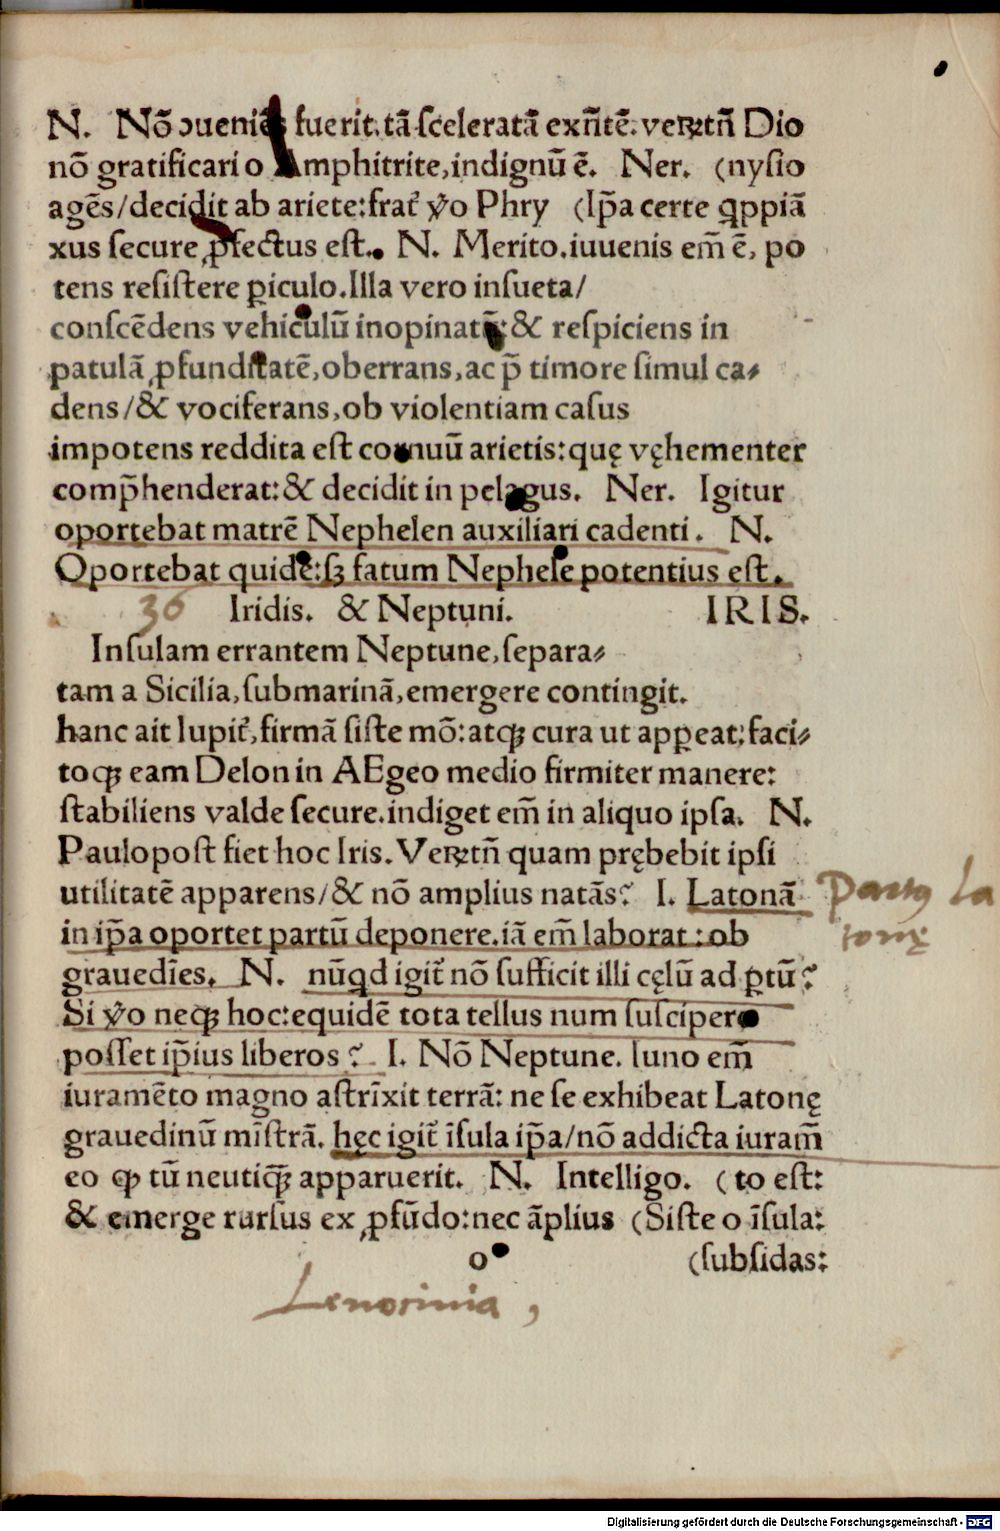 N. Nõ ɔueniẽs fuerit, tã ſceleratã exñtẽ. veꝝtñ Dio
nõ gratificari o Amphitrite, indignũ ẽ. Ner. (nysio
agẽs/decidit ab ariete: frat᷑ v̾o Phry (Ip̃a certe ꝓppiã
xus ſecure ꝓfectus eſt. N. Merito. iuuenis em̃ ẽ, po
tens reſiſtere ꝑiculo. Illa vero inſueta/
conſcẽdens vehiculũ inopinatũ: & reſpiciens in
patulã ꝓfunditatẽ, oberrans, ac p̃ timore ſimul ca⸗
dens/& vociferans, ob violentiam caſus
impotens reddita eſt cornuũ arietis: quę vęhementer
comp̃henderat: & decidit in pelagus. Ner. Igitur
oportebat matrẽ Nephelen auxiliari cadenti. N.
Oportebat quidẽ: ſꝫ fatum Nephele potentius eſt.
36 Iridis. & Neptuni. IRIS.
Inſulam errantem Neptune, ſepara⸗
tam a Sicilia, ſubmarinã, emergere contingit.
hanc ait Iupit᷑, firmã ſiſte mõ: atqꝫ cura ut apꝑeat: faci⸗
toqꝫ eam Delon in AEgeo medio firmiter manere:
ſtabiliens valde ſecure. indiget em̃ in aliquo ipſa. N.
Paulopoſt fiet hoc Iris. Veꝝtñ quam prębebit ipſi
utilitatẽ apparens/& nõ amplius natãs? I. Latonã
Partus La
in ip̃a oportet partũ deponere. iã em̃ laborat: ob
tonę
grauedĩes. N. nũqd igit᷑ nõ ſufficit illi cęlũ ad ꝑtũ?
Si v̾o neqꝫ hoc: equidẽ tota tellus num ſuſcipere
poſſet ip̃ius liberos? I. Nõ Neptune. Iuno em̃
iuramẽto magno aſtrĩxit terrã: ne ſe exhibeat Latonę
grauedinũ mĩſtrã. hęc igit᷑ ĩſula ip̃a/nõ addicta iuram̃
eo ꝙ tũ neutiqꝫ̃ apparuerit. N. Intelligo. (to eſt:
& emerge rurſus ex ꝓfũdo: nec ãplius (Siſte o ĩſula:
o (ſubſidas:
Lenocinia,
Digitalisierung gefördert durch die Deutsche Forschungsgemeinschaft - DFG